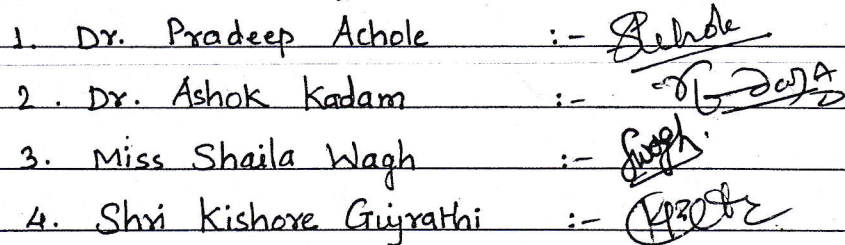 1. Dr. Pradeep Achole :-
2. Dr. Ashok Kadam :-
3. Miss Shaila Wagh :- Swagh.
4. Shri Kishore Gujrathi :-